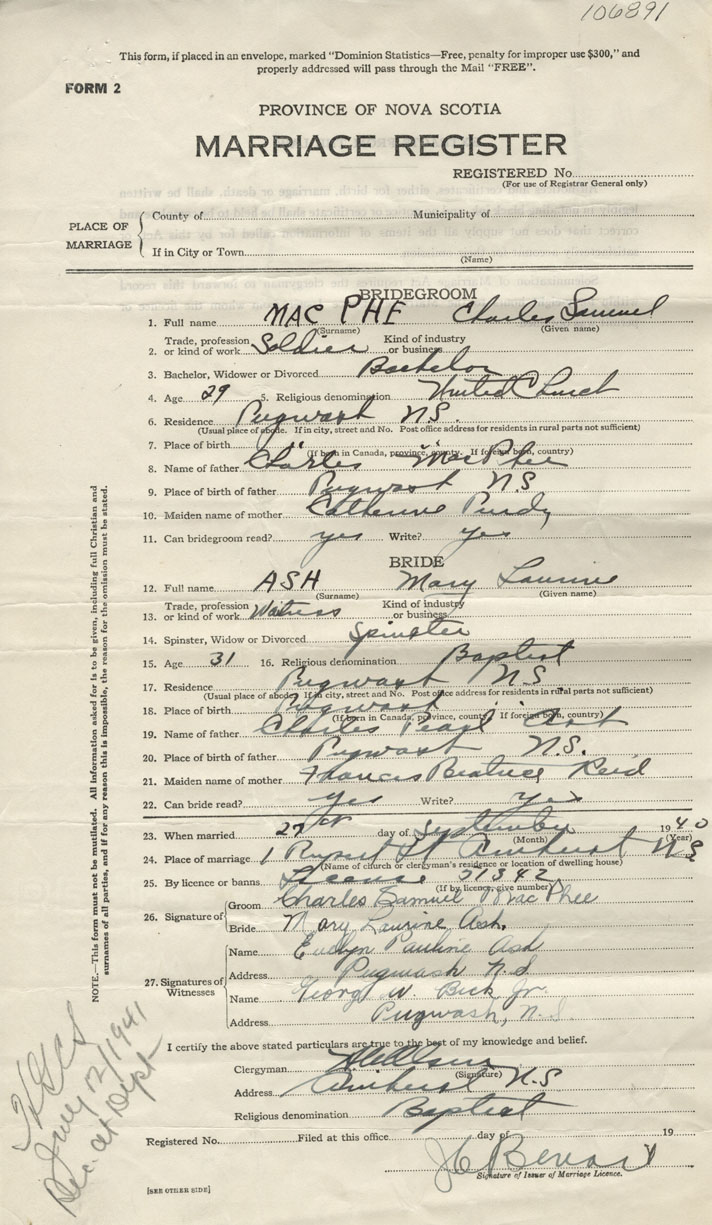 106891
This form, if placed in an envelope, marked "Dominion Statistics—Free, penalty for improper use $300," and
properly addressed will pass through the Mail "FREE".
FORM 2
PROVINCE OF NOVA SCOTIA
MARRIAGE REGISTER
REGISTERED No.
(For use of Registrar General only)
PLACE OF MARRIAGE
County of
Municipality of
If in City or Town
(Name)
BRIDEGROOM
1. Full name MAC PHE Charles Samuel
(Surname) (Given name)
2. Trade, profession or kind of work Soldier Kind of industry or business
3. Bachelor, Widower or Divorced Bachelor
4. Age 29 5. Religious denomination United Church
6. Residence Pugwash N.S.
(Usual place of abode. If in city, street and No. Post office address for residents in rural parts not sufficient)
7. Place of birth " "
(If born in Canada, province, county. If foreign, country)
8. Name of father Charles MacPhee
9. Place of birth of father Pugwash N.S
10. Maiden name of mother Catherine Purdy
11. Can bridegroom read? yes Write? yes
BRIDE
12. Full name ASH Mary Laurine
(Surname) (Given name)
13. Trade, profession or kind of work Waitress Kind of industry or business
14. Spinster, Widow or Divorced Spinster
15. Age 31 16. Religious denomination Baptist
17. Residence Pugwash NS
(Usual place of abode. If in city, street and No. Post office address for residents in rural parts not sufficient)
18. Place of birth Pugwash "
(If born in Canada, province, county. If foreign born, country)
19. Name of father Charles Pearl Ash
20. Place of birth of father Pugwash N.S.
21. Maiden name of mother Frances Beatrice Reid
22. Can bride read? yes Write? yes
23. When married 27 day of September 1940
(Month) (Year)
24. Place of marriage 1 Rupert St Amherst N.S
(Name of church or clergyman's residence or location of dwelling house)
25. By licence or banns License 51342
(If by licence, give number)
26. Signature of
Groom Charles Samuel MacPhee
Bride Mary Laurine Ash.
27. Signatures of Witnesses
Name Evelyn Pauline Ash
Address Pugwash N.S.
Name George W. Beck Jr.
Address Pugwash, N.S.
I certify the above stated particulars are true to the best of my knowledge and belief.
Clergyman
(Signature)
Address Amherst N.S
Religious denomination Baptist
Registered No. Filed at this office day of 19
Signature of Issuer of Marriage Licence.
[SEE OTHER SIDE]
NOTE.—This form must not be mutilated. All information asked for is to be given, including full Christian and
surnames of all parties, and if for any reason this is impossible, the reason for the omission must be stated.
12/1941
Rec. at Dept